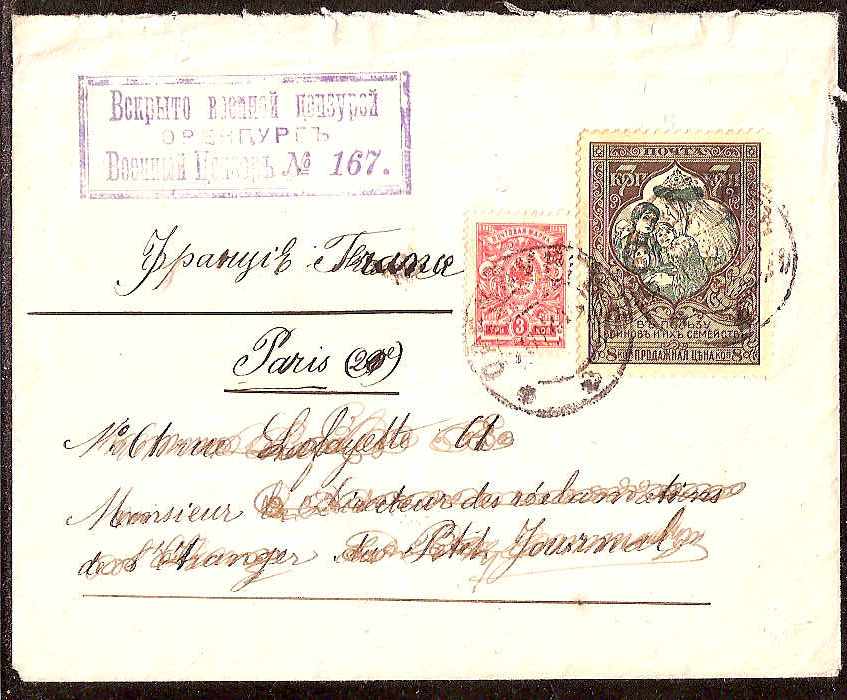 Вскрыто военной цензурой
ОРЕНБУРГЪ
Военный Цензоръ № 167.
ПОЧТА
КОП 7 7 К
ПОЧТОВАЯ МАРКА
Франціѣ France
КОП 3 КОП
Paris (20e)
ВЪ ПОЛЬЗУ
ВОИНОВЪ И ИХЪ СЕМЕЙСТВЪ
8 КОП ПРОДАЖНАЯ ЦѢНА КОП 8
No 61 rue Lafayette 61
Monsieur le Directeur des réclamations
de l'étranger du Petit Journal